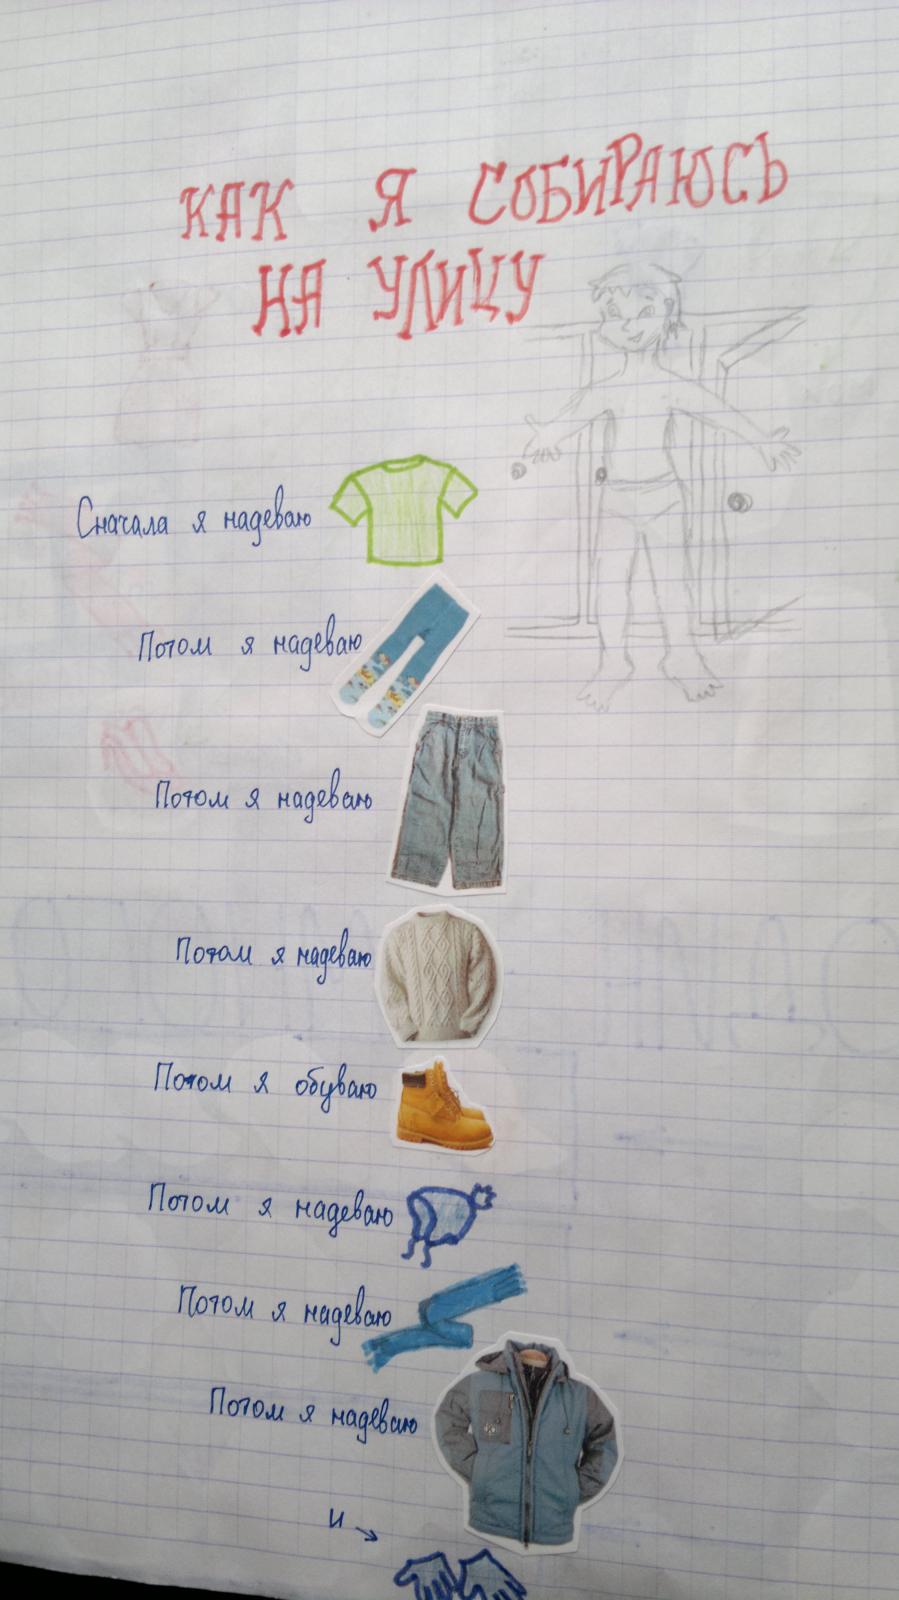 КАК Я СОБИРАЮСЬ
НА УЛИЦУ
Сначала я надеваю
Потом я надеваю
Потом я надеваю
Потом я надеваю
Потом я обуваю
Потом я надеваю
Потом я надеваю
Потом я надеваю
и